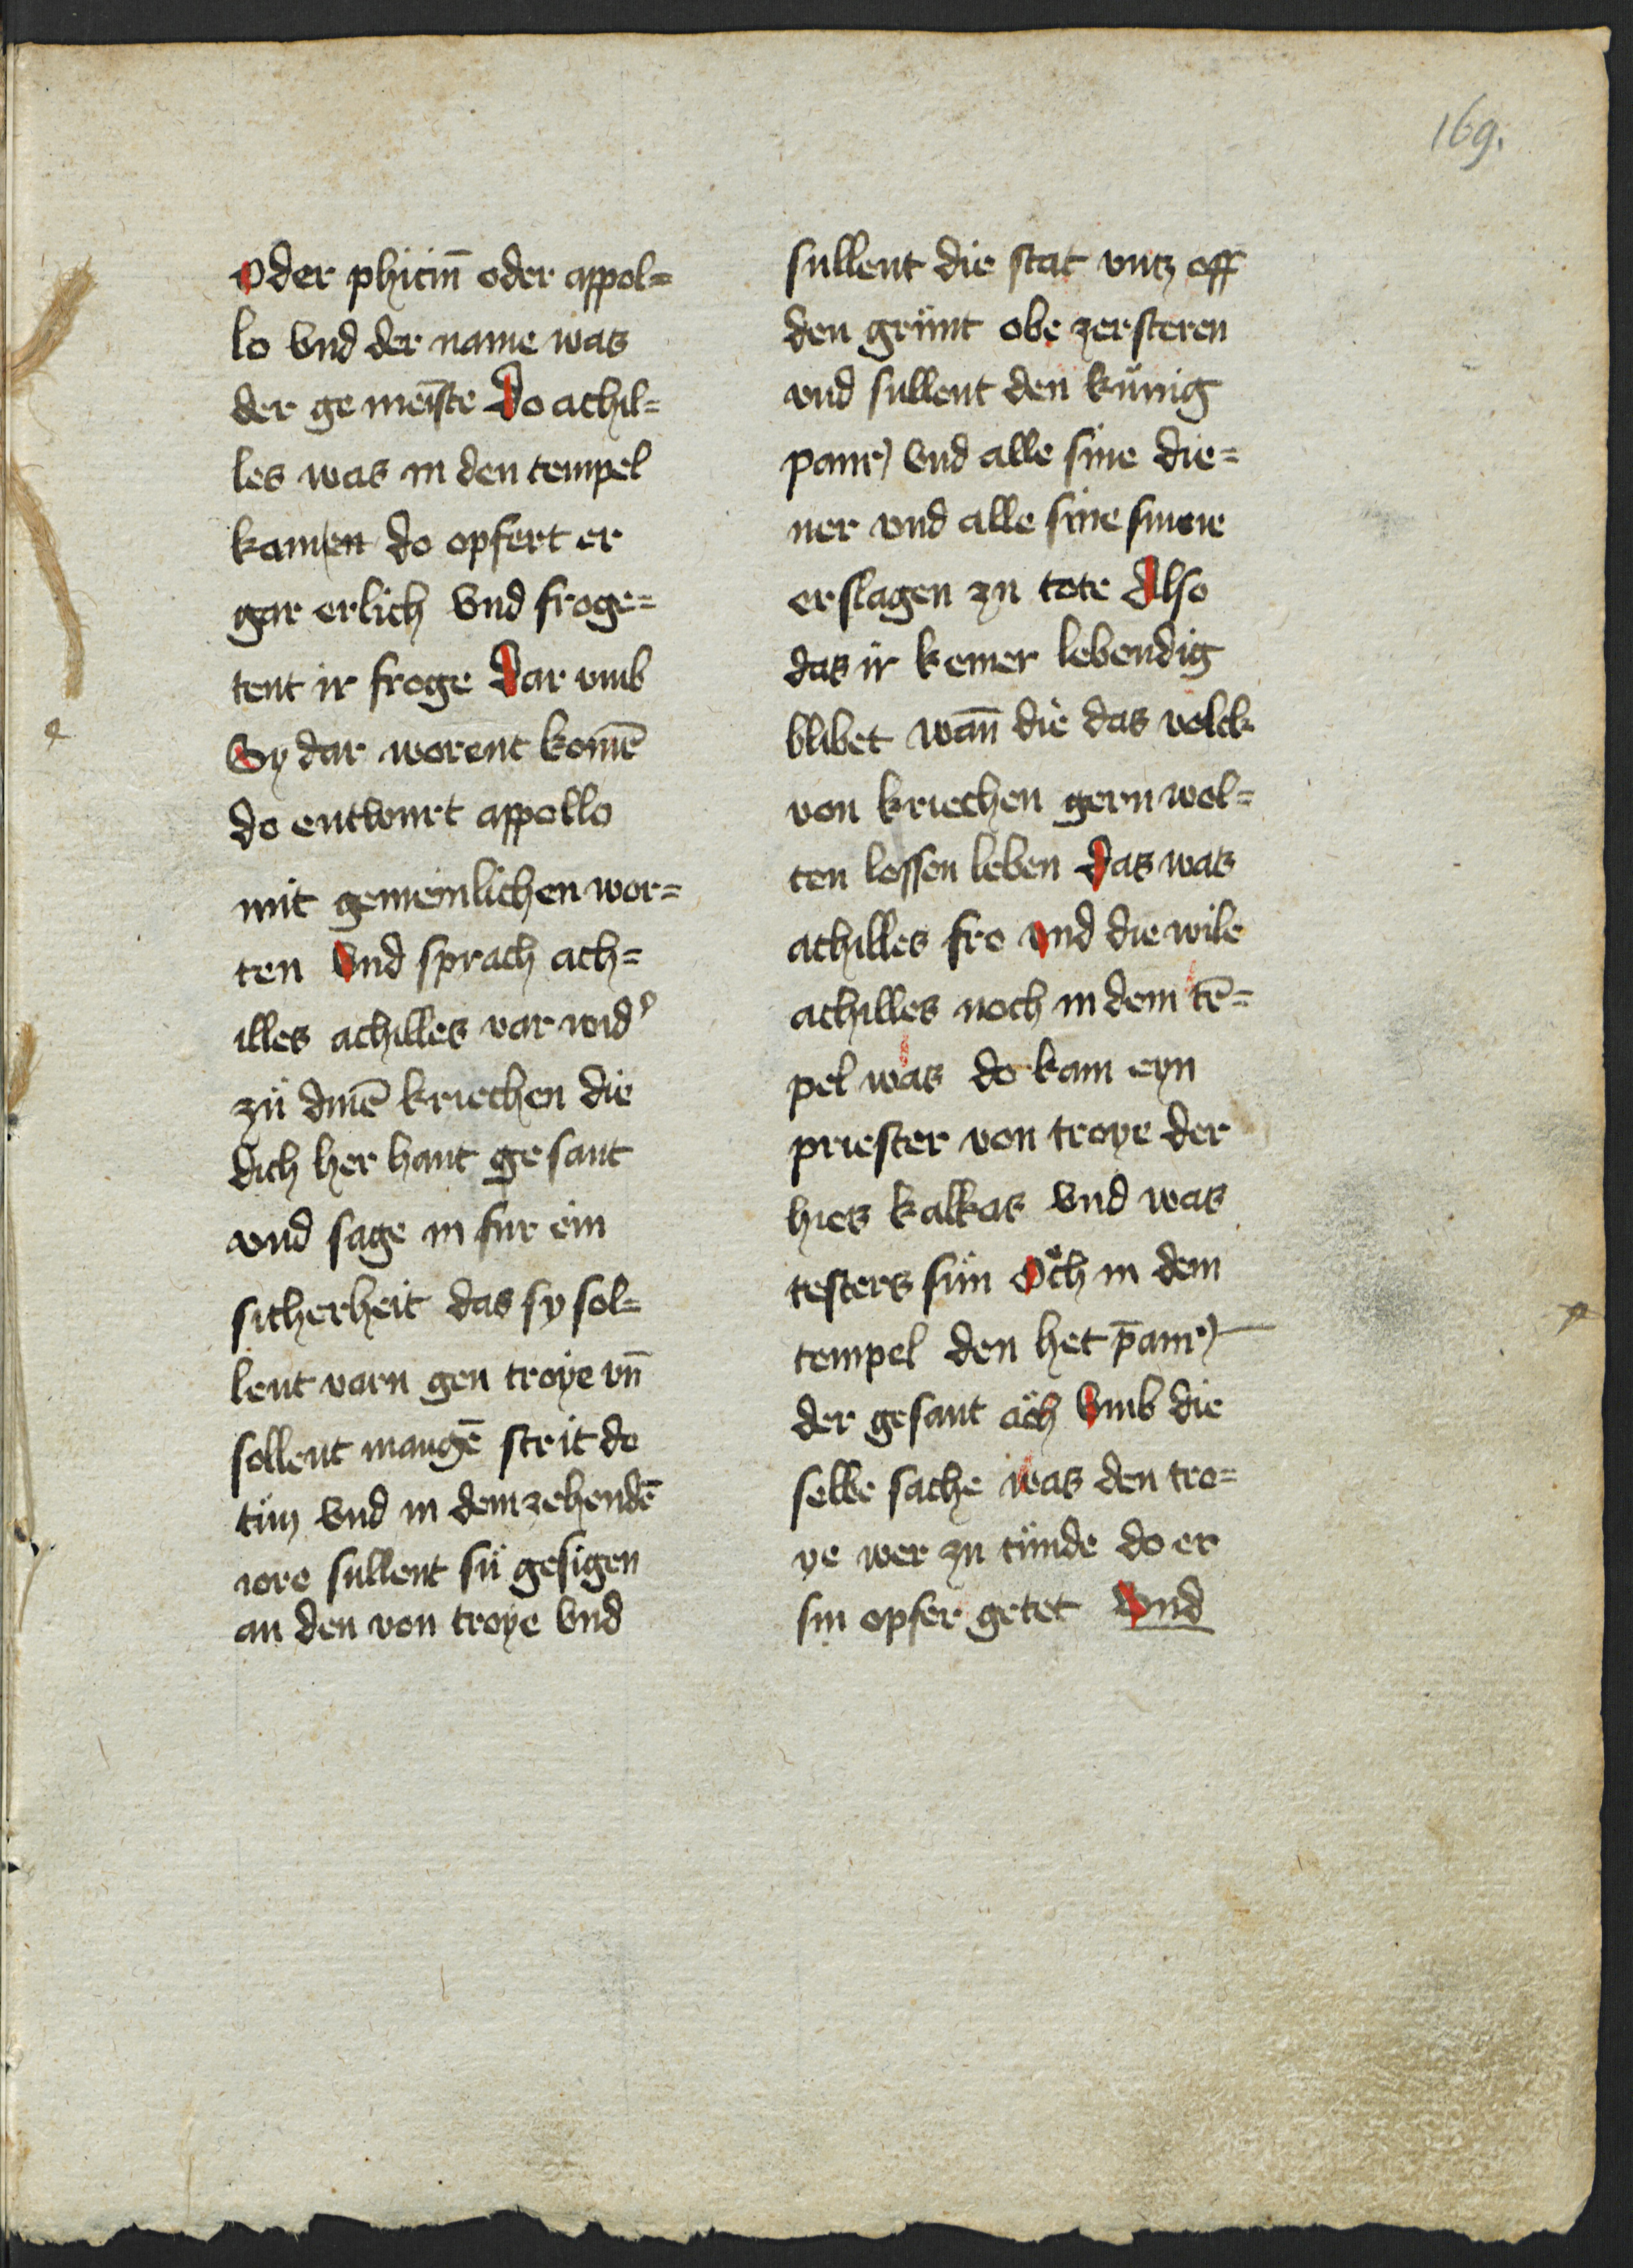 169.
Oder phicin̄ oder appol=
lo vnd der name was
der gemeiste Do achil=
les was in den tempel
kamen do opfert er
gar erlich vnd froge=
tent ir froge Dar vmb
Sy dar worent komē
do entwurt appollo
mit gemeinlichen wor=
ten Vnd sprach ach=
illes achilles var wid᾽
zü dinē kriechen die
dich her hant gesant
vnd sage in fur ein
sicherheit das sy sol=
lent varn gen troye vn̄
sollent mangē strit do
tün vnd in dem zehendē
iore sullent sü gesigen
an den von troye vnd
sullent die stat vntz off
den grünt obe zersteren
vnd sullent den künig
vnd alle sine die=
ner vnd alle sine
erslagen zu tote Also
das ir keiner lebendig
blibet wan̄ die das volck
von kriechen gern wol=
ten lossen leben Das was
achilles fro Vnd die wile
achilles noch in dem tē=
pel was do kam eyn
priester von troye der
hies kalkas vnd was
testers sün Och in dem
tempel den het
der gesant äch Vmb die
selbe sache was den tro=
ye wer zu tünde do er
sin opfer getet Vnd